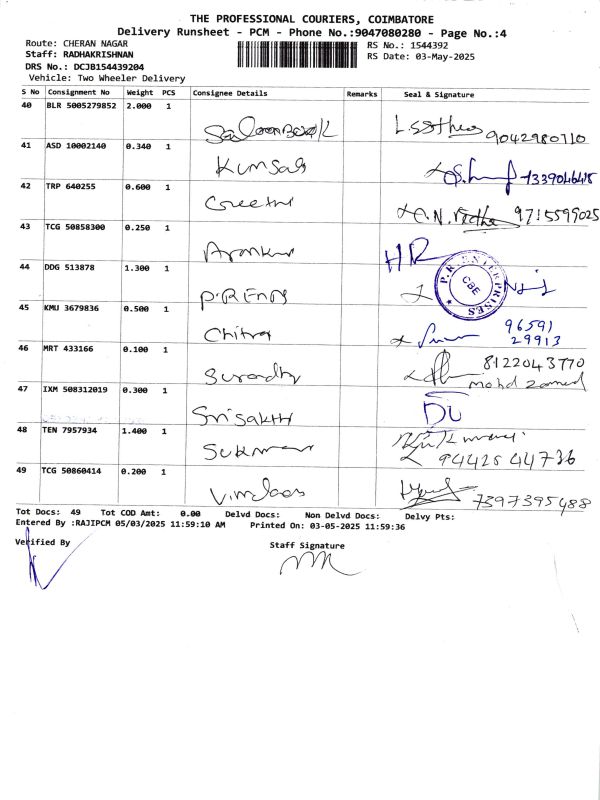 THE PROFESSIONAL COURIERS, COIMBATORE
Delivery Runsheet - PCM - Phone No.:9047080280 - Page No.:4
Route: CHERAN NAGAR
RS No.: 1544392
Staff: RADHAKRISHNAN
RS Date: 03-May-2025
DRS No.: DCJB154439204
Vehicle: Two Wheeler Delivery
S No Consignment No Weight PCS Consignee Details Remarks Seal & Signature
40 BLR 5005279852 2.000 1
9042980710
41 ASD 10002140 0.340 1
Kumsab
7339046415
42 TRP 640255 0.600 1
Greethi
9715599025
43 TCG 50858300 0.250 1
HR
44 DDG 513878 1.300 1
P.R.ENTERPRISES
CBE
45 KMU 3679836 0.500 1
Chitra
96591
29913
46 MRT 433166 0.100 1
8122043770
mohd
47 IXM 508312019 0.300 1
Sri Sakthi
DU
48 TEN 7957934 1.400 1
Sukmar
9442544736
49 TCG 50860414 0.200 1
7397395488
Tot Docs: 49 Tot COD Amt: 0.00 Delvd Docs: Non Delvd Docs: Delvy Pts:
Entered By :RAJIPCM 05/03/2025 11:59:10 AM Printed On: 03-05-2025 11:59:36
Verified By
Staff Signature